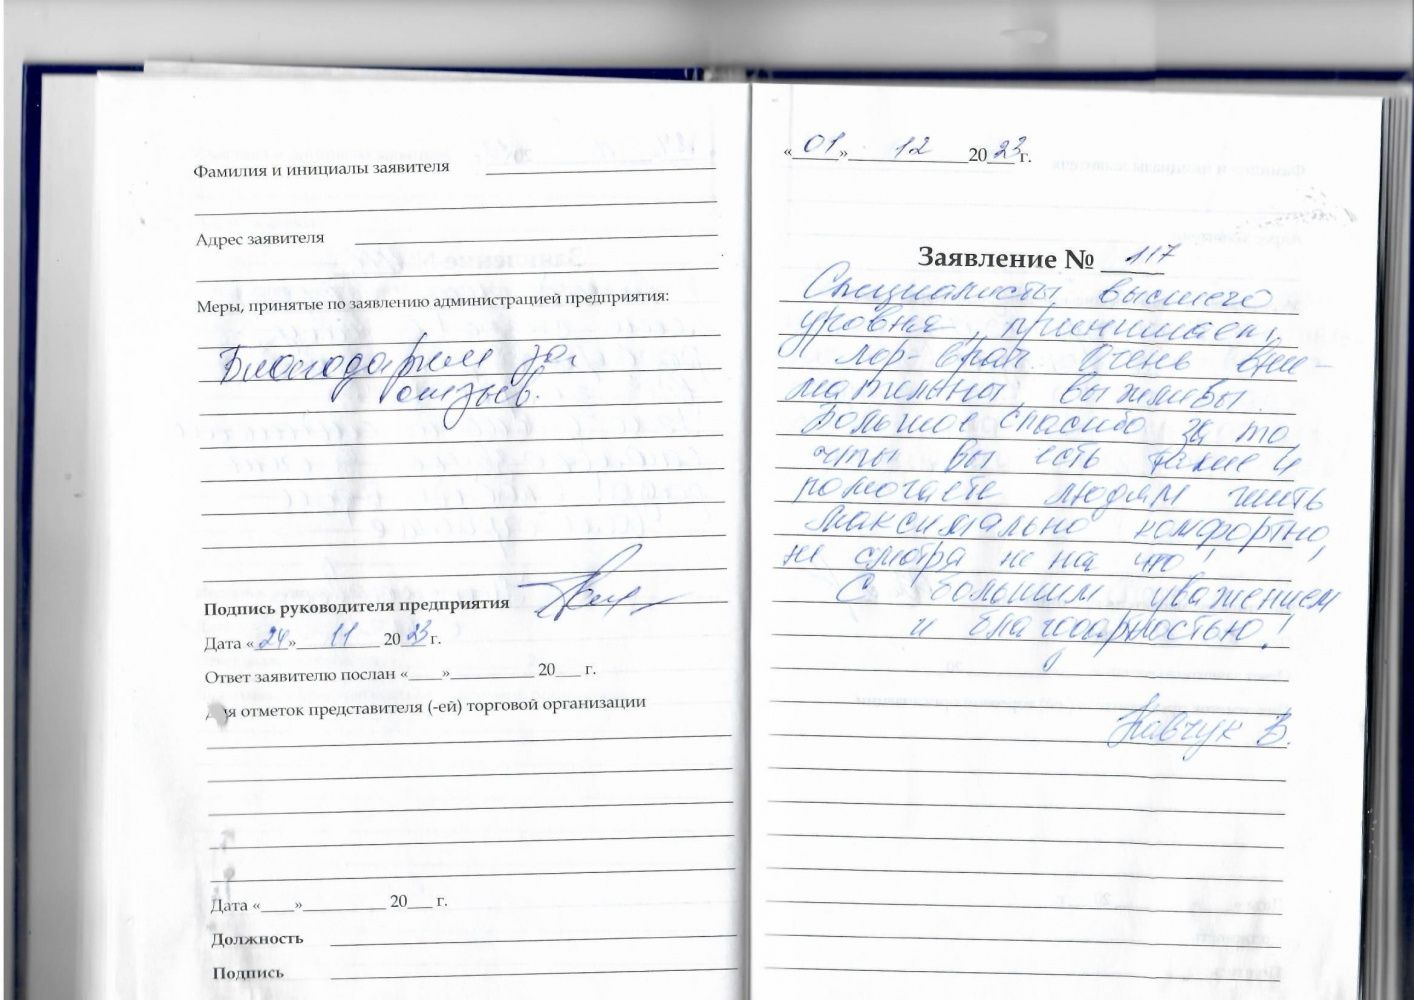 Фамилия и инициалы заявителя
Адрес заявителя
Меры, принятые по заявлению администрацией предприятия:
Благодарим за
отзыв.
Подпись руководителя предприятия
Дата «24» 11 2023 г.
Ответ заявителю послан «____»__________ 20___ г.
Для отметок представителя (-ей) торговой организации
Дата «____»__________ 20___ г.
Должность
Подпись
«01» 12 2023 г.
Заявление № 117
Специалисты высшего
уровня, принимает
лор-врач. Очень вни-
мательны, вежливы.
Большое спасибо за то,
что вы есть такие и
помогаете людям жить
максимально комфортно,
не смотря не на что!
С большим уважением
и благодарностью!
В.